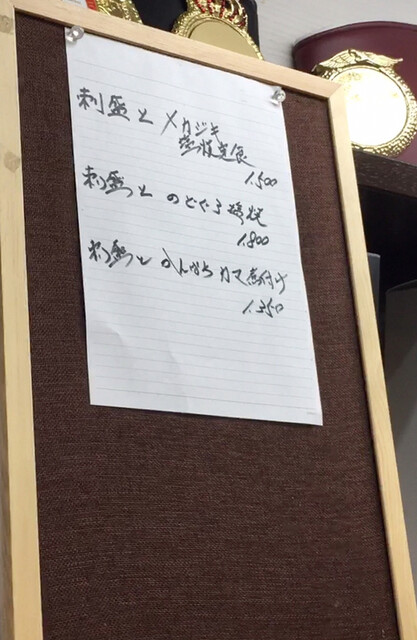 刺盛と メカジキ
照焼定食
1.500
刺盛と のどぐろ塩焼
1.800
刺盛と かんぱちカマ煮付け
1.350